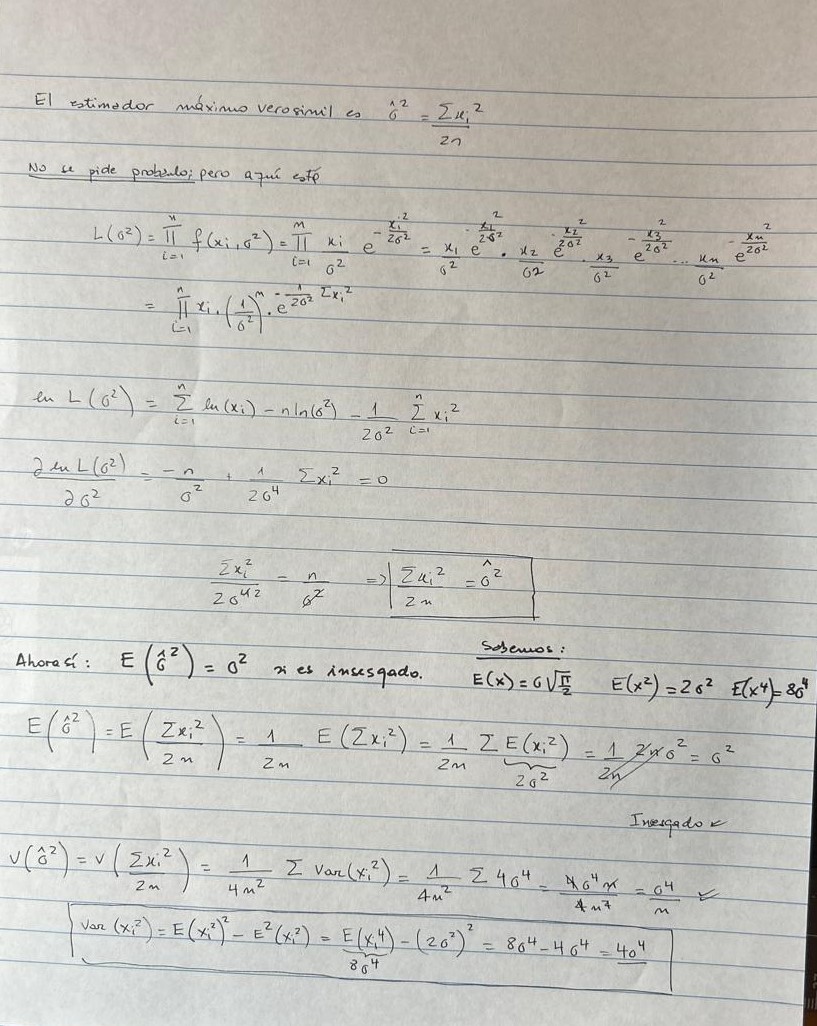 El estimador máximo verosimil es σ̂² = Σxi² / 2n
No se pide probarlo; pero aquí está
L(σ²) = ∏_{i=1}^{n} f(xi, σ²) = ∏_{i=1}^{n} xi/σ² e^{-xi²/2σ²} = x1/σ² e^{-x1²/2σ²} · x2/σ² e^{-x2²/2σ²} · x3/σ² e^{-x3²/2σ²} ... xn/σ² e^{-xn²/2σ²}
= ∏_{i=1}^{n} xi · (1/σ²)^n · e^{-1/2σ² Σxi²}
ln L(σ²) = Σ_{i=1}^{n} ln(xi) - n ln(σ²) - 1/2σ² Σ_{i=1}^{n} xi²
∂ ln L(σ²) / ∂σ² = -n/σ² + 1/2σ⁴ Σxi² = 0
Σxi² / 2σ⁴² = n/σ² => Σxi² / 2n = σ̂²
Ahora sí: E(σ̂²) = σ² si es insesgado.
Sabemos:
E(x) = σ√(π/2) E(x²) = 2σ² E(x⁴) = 8σ⁴
E(σ̂²) = E(Σxi² / 2n) = 1/2n E(Σxi²) = 1/2n Σ E(xi²) = 1/2n 2nσ² = σ²
2σ²
Insesgado ✓
V(σ̂²) = V(Σxi² / 2n) = 1/4n² Σ Var(xi²) = 1/4n² Σ 4σ⁴ = 4σ⁴n / 4n² = σ⁴/n ✓
Var(xi²) = E(xi²)² - E²(xi²) = E(xi⁴) - (2σ²)² = 8σ⁴ - 4σ⁴ = 4σ⁴
8σ⁴